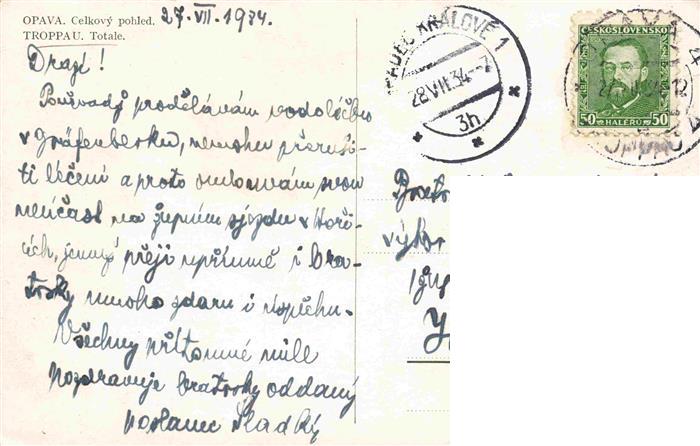 OPAVA. Celkový pohled.
TROPPAU. Totale.
27.VII.1934.
Drazí!
Poněvadž prodělávám vodoléčbu
v Gräfenberku, nemohu přeruši-
ti léčení a proto omlouvám svou
neúčast na župním sjezdu v Hoři-
cích, jemuž přeji upřímně i bra-
trsky mnoho zdaru i úspěchu.
Všechny přítomné mile
pozdravuje bratrsky oddaný
poslanec Sladký
HRADEC KRÁLOVÉ 1
28.VII.34.-7
3h
ČESKOSLOVENSKO
50 HALÉŘŮ 50
OPAVA 4